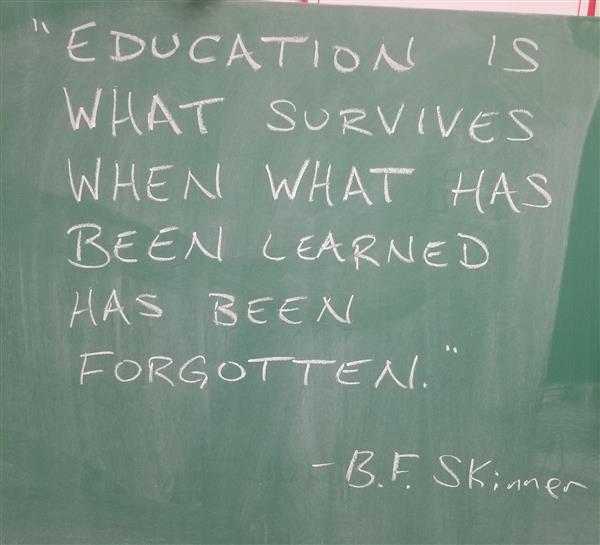 "EDUCATION IS
WHAT SURVIVES
WHEN WHAT HAS
BEEN LEARNED
HAS BEEN
FORGOTTEN."
- B.F. SKinner